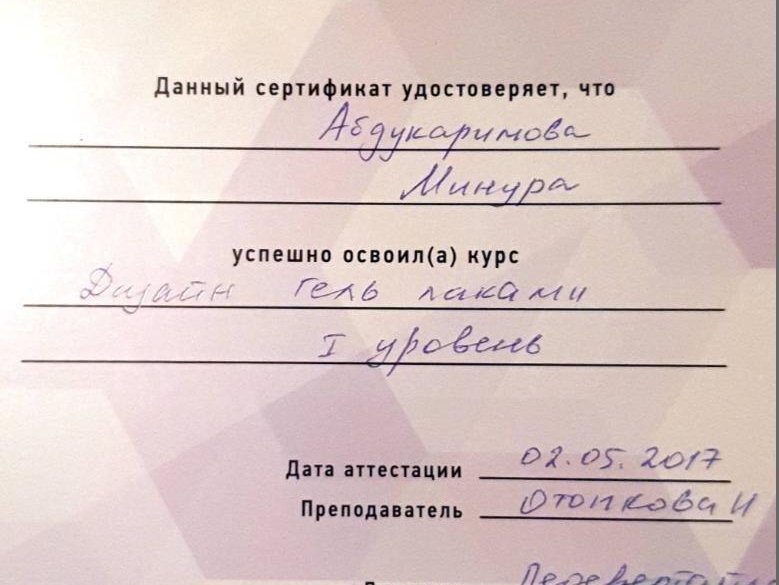 Данный сертификат удостоверяет, что
Абдукаримова
Минура
успешно освоил(а) курс
Дизайн гель лаками
I уровень
Дата аттестации 02.05.2017
Преподаватель